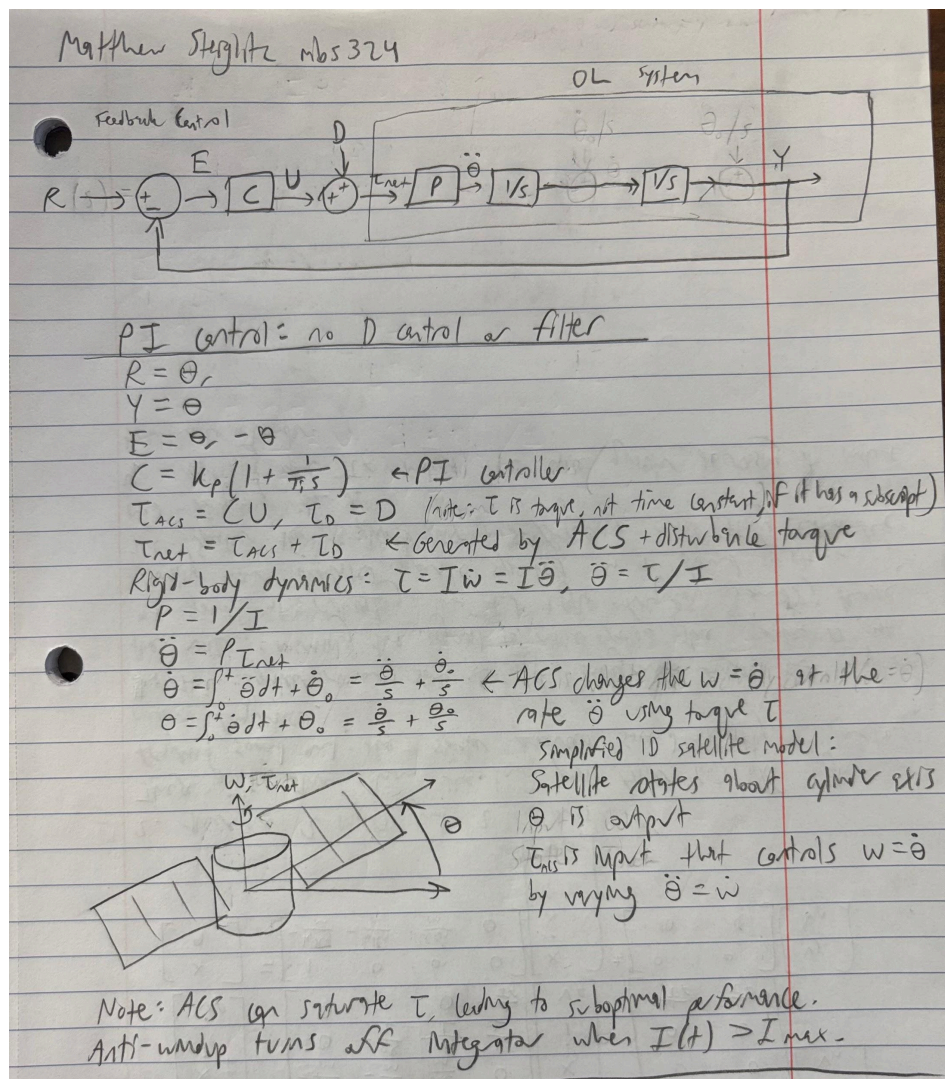 Matthew Sterglitz mbs324
OL system
Feedback Control
R E C U D τnet P θ̈ 1/s 1/s Y
PI control: no D control or filter
R = θr
Y = θ
E = θr - θ
C = Kp(1 + 1/(TIs)) ← PI controller
τACS = CU, τD = D (note: τ is torque, not time constant, if it has a subscript)
τnet = τACS + τD ← Generated by ACS + disturbance torque
Rigid-body dynamics: τ = Iω̇ = Iθ̈, θ̈ = τ/I
P = 1/I
θ̈ = Pτnet
θ̇ = ∫₀ᵗ θ̈ dt + θ̇₀ = θ̈/s + θ̇₀/s ← ACS changes the ω = θ̇ at the
θ = ∫₀ᵗ θ̇ dt + θ₀ = θ̇/s + θ₀/s rate θ̈ using torque τ
simplified 1D satellite model:
ω, τnet
Satellite rotates about cylinder axis
θ
θ is output
τACS is input that controls ω = θ̇
by varying θ̈ = ω̇
Note: ACS can saturate τ, leading to suboptimal performance.
Anti-windup turns off integrator when I(t) > Imax.